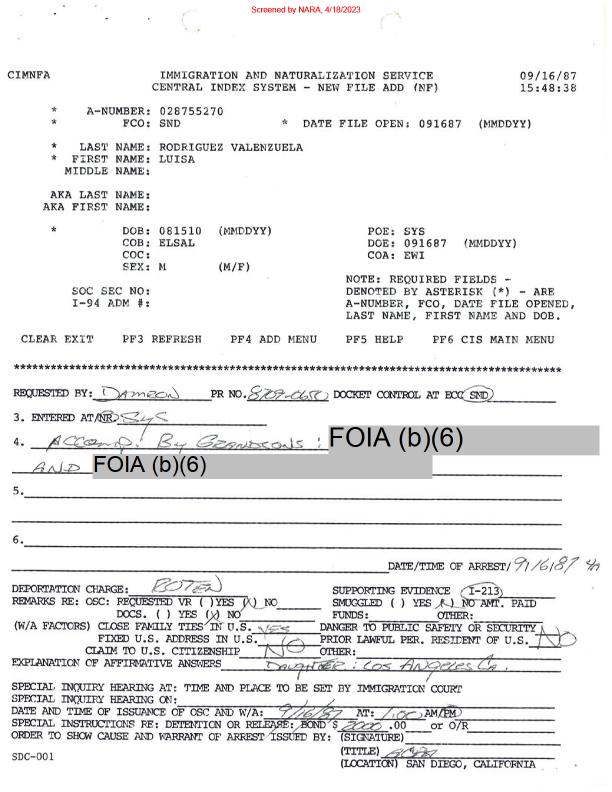 Screened by NARA, 4/18/2023
CIMNFA IMMIGRATION AND NATURALIZATION SERVICE 09/16/87
CENTRAL INDEX SYSTEM - NEW FILE ADD (NF) 15:48:38
* A-NUMBER: 028755270
* FCO: SND * DATE FILE OPEN: 091687 (MMDDYY)
* LAST NAME: RODRIGUEZ VALENZUELA
* FIRST NAME: LUISA
MIDDLE NAME:
AKA LAST NAME:
AKA FIRST NAME:
* DOB: 081510 (MMDDYY) POE: SYS
COB: ELSAL DOE: 091687 (MMDDYY)
COC: COA: EWI
SEX: M (M/F)
NOTE: REQUIRED FIELDS -
SOC SEC NO: DENOTED BY ASTERISK (*) - ARE
I-94 ADM #: A-NUMBER, FCO, DATE FILE OPENED,
LAST NAME, FIRST NAME AND DOB.
CLEAR EXIT PF3 REFRESH PF4 ADD MENU PF5 HELP PF6 CIS MAIN MENU
REQUESTED BY: DAMRON PR NO. 8709-0650 DOCKET CONTROL AT ECC SND
3. ENTERED AT/NR SYS
4. ACCOMP. BY GRANDSONS: FOIA (b)(6)
AND FOIA (b)(6)
5.
6.
DATE/TIME OF ARREST/ 9/16/87
DEPORTATION CHARGE: SUPPORTING EVIDENCE I-213
REMARKS RE: OSC: REQUESTED VR ( )YES (X) NO SMUGGLED ( ) YES (X) NO AMT. PAID
DOCS. ( ) YES (X) NO FUNDS: OTHER:
(W/A FACTORS) CLOSE FAMILY TIES IN U.S. YES DANGER TO PUBLIC SAFETY OR SECURITY
FIXED U.S. ADDRESS IN U.S. PRIOR LAWFUL PER. RESIDENT OF U.S. NO
CLAIM TO U.S. CITIZENSHIP NO OTHER:
EXPLANATION OF AFFIRMATIVE ANSWERS DAUGHTER: LOS ANGELES CA.
SPECIAL INQUIRY HEARING AT: TIME AND PLACE TO BE SET BY IMMIGRATION COURT
SPECIAL INQUIRY HEARING ON:
DATE AND TIME OF ISSUANCE OF OSC AND W/A: 9/16/87 AT: 1:00 AM/PM
SPECIAL INSTRUCTIONS RE: DETENTION OR RELEASE: BOND $ 2000 .00 or O/R
ORDER TO SHOW CAUSE AND WARRANT OF ARREST ISSUED BY: (SIGNATURE)
SDC-001 (TITLE)
(LOCATION) SAN DIEGO, CALIFORNIA